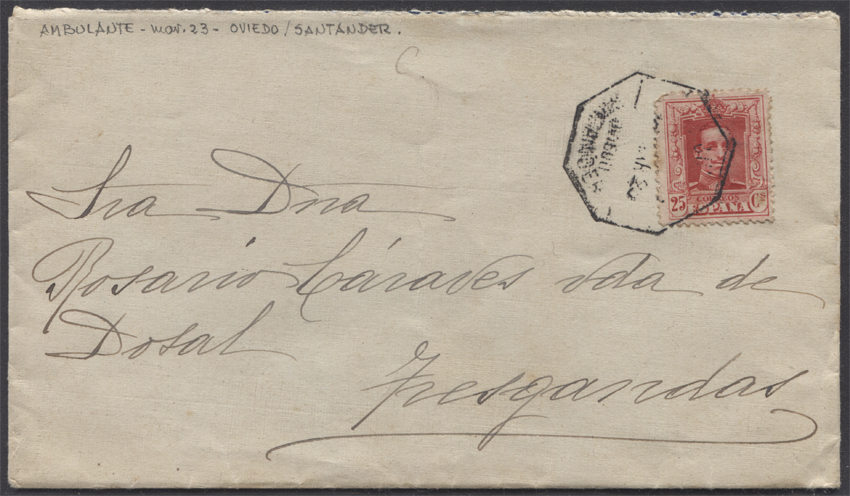 AMBULANTE - mar. 23 - OVIEDO / SANTANDER.
Sra Dña
Rosario Cáraves vda de
Dosal
Tresgandas
25 CORREOS Cs
ESPAÑA